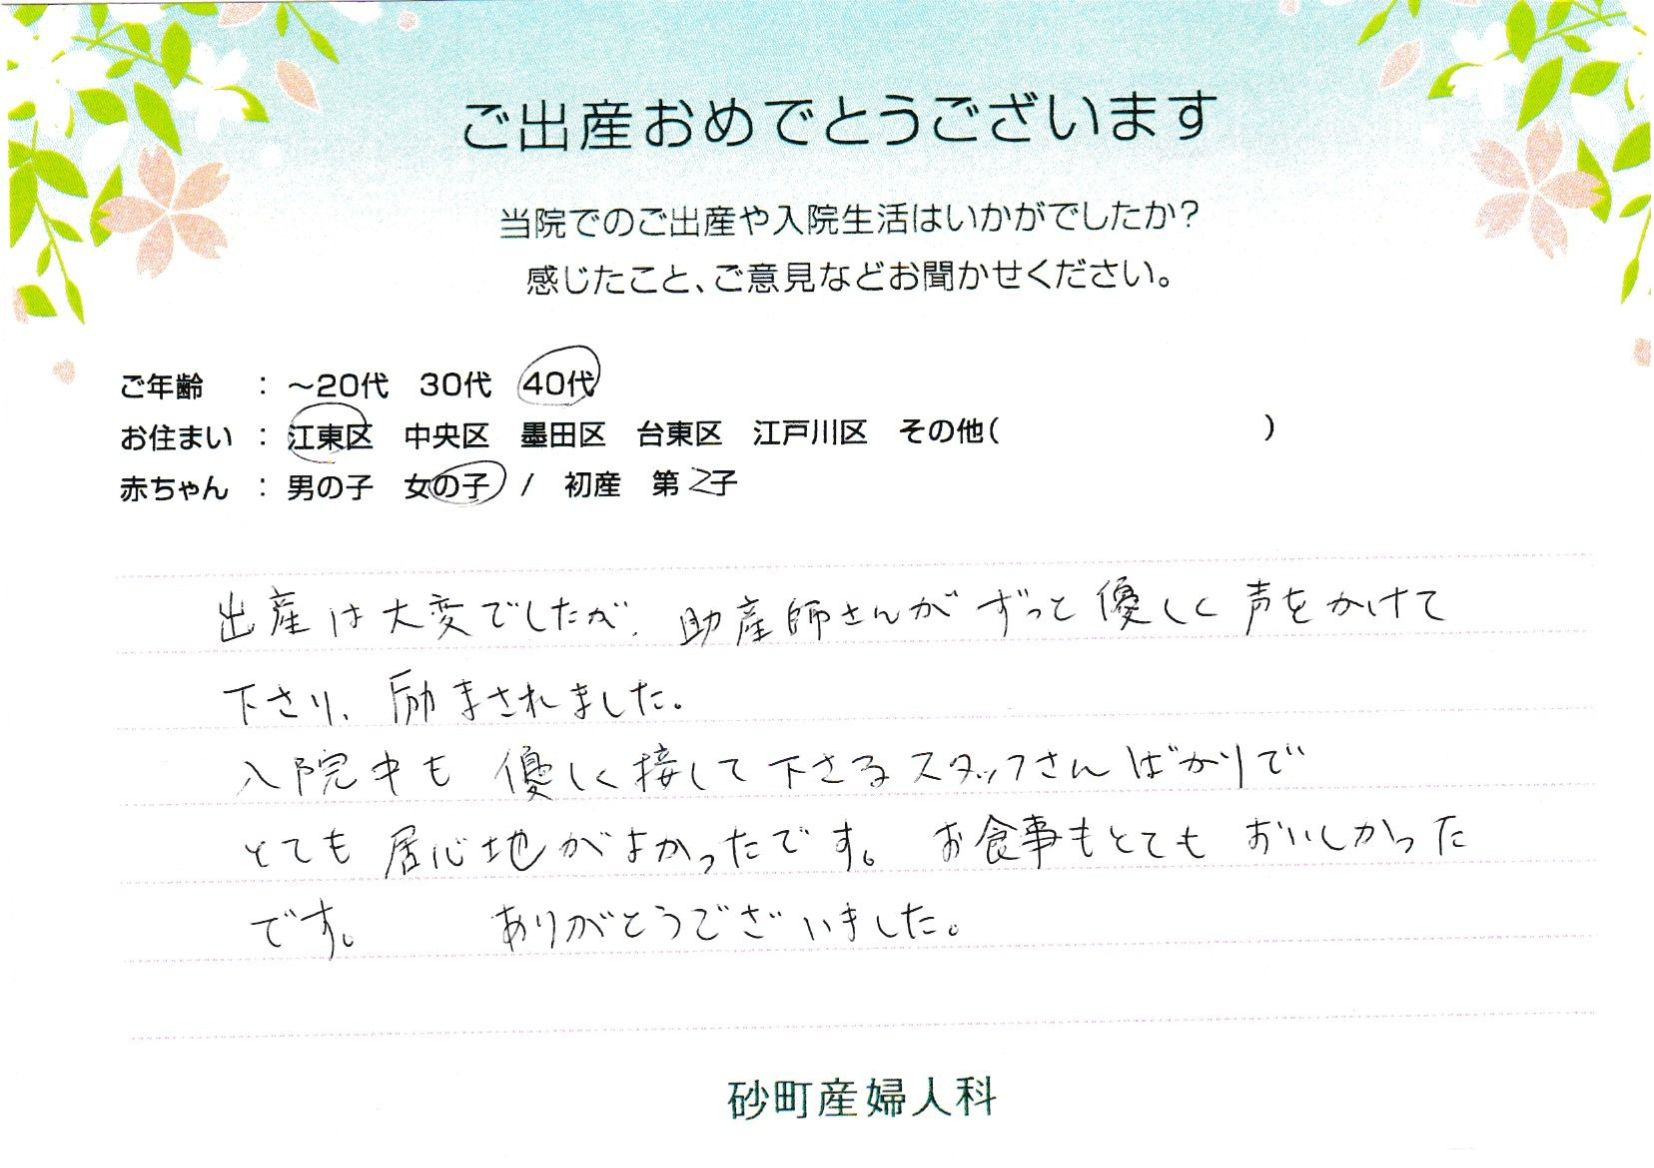 ご出産おめでとうございます
当院でのご出産や入院生活はいかがでしたか?
感じたこと、ご意見などお聞かせください。
ご年齢 : ～20代 30代 40代
お住まい : 江東区 中央区 墨田区 台東区 江戸川区 その他( )
赤ちゃん : 男の子 女の子 / 初産 第2子
出産は大変でしたが、助産師さんがずっと優しく声をかけて
下さり、励まされました。
入院中も優しく接して下さるスタッフさんばかりで
とても居心地がよかったです。お食事もとてもおいしかった
です。 ありがとうございました。
砂町産婦人科